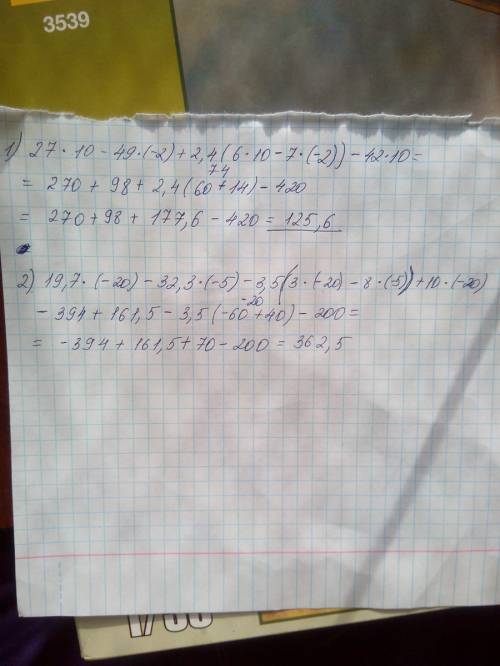 3539
1) 27·10 - 49·(-2) + 2,4(6·10 - 7·(-2)) - 42·10 =
74
= 270 + 98 + 2,4(60 + 14) - 420
= 270 + 98 + 177,6 - 420 = 125,6
2) 19,7·(-20) - 32,3·(-5) - 3,5(3·(-20) - 8·(-5)) + 10·(-20)
-20
- 394 + 161,5 - 3,5(-60 + 40) - 200 =
= -394 + 161,5 + 70 - 200 = 362,5